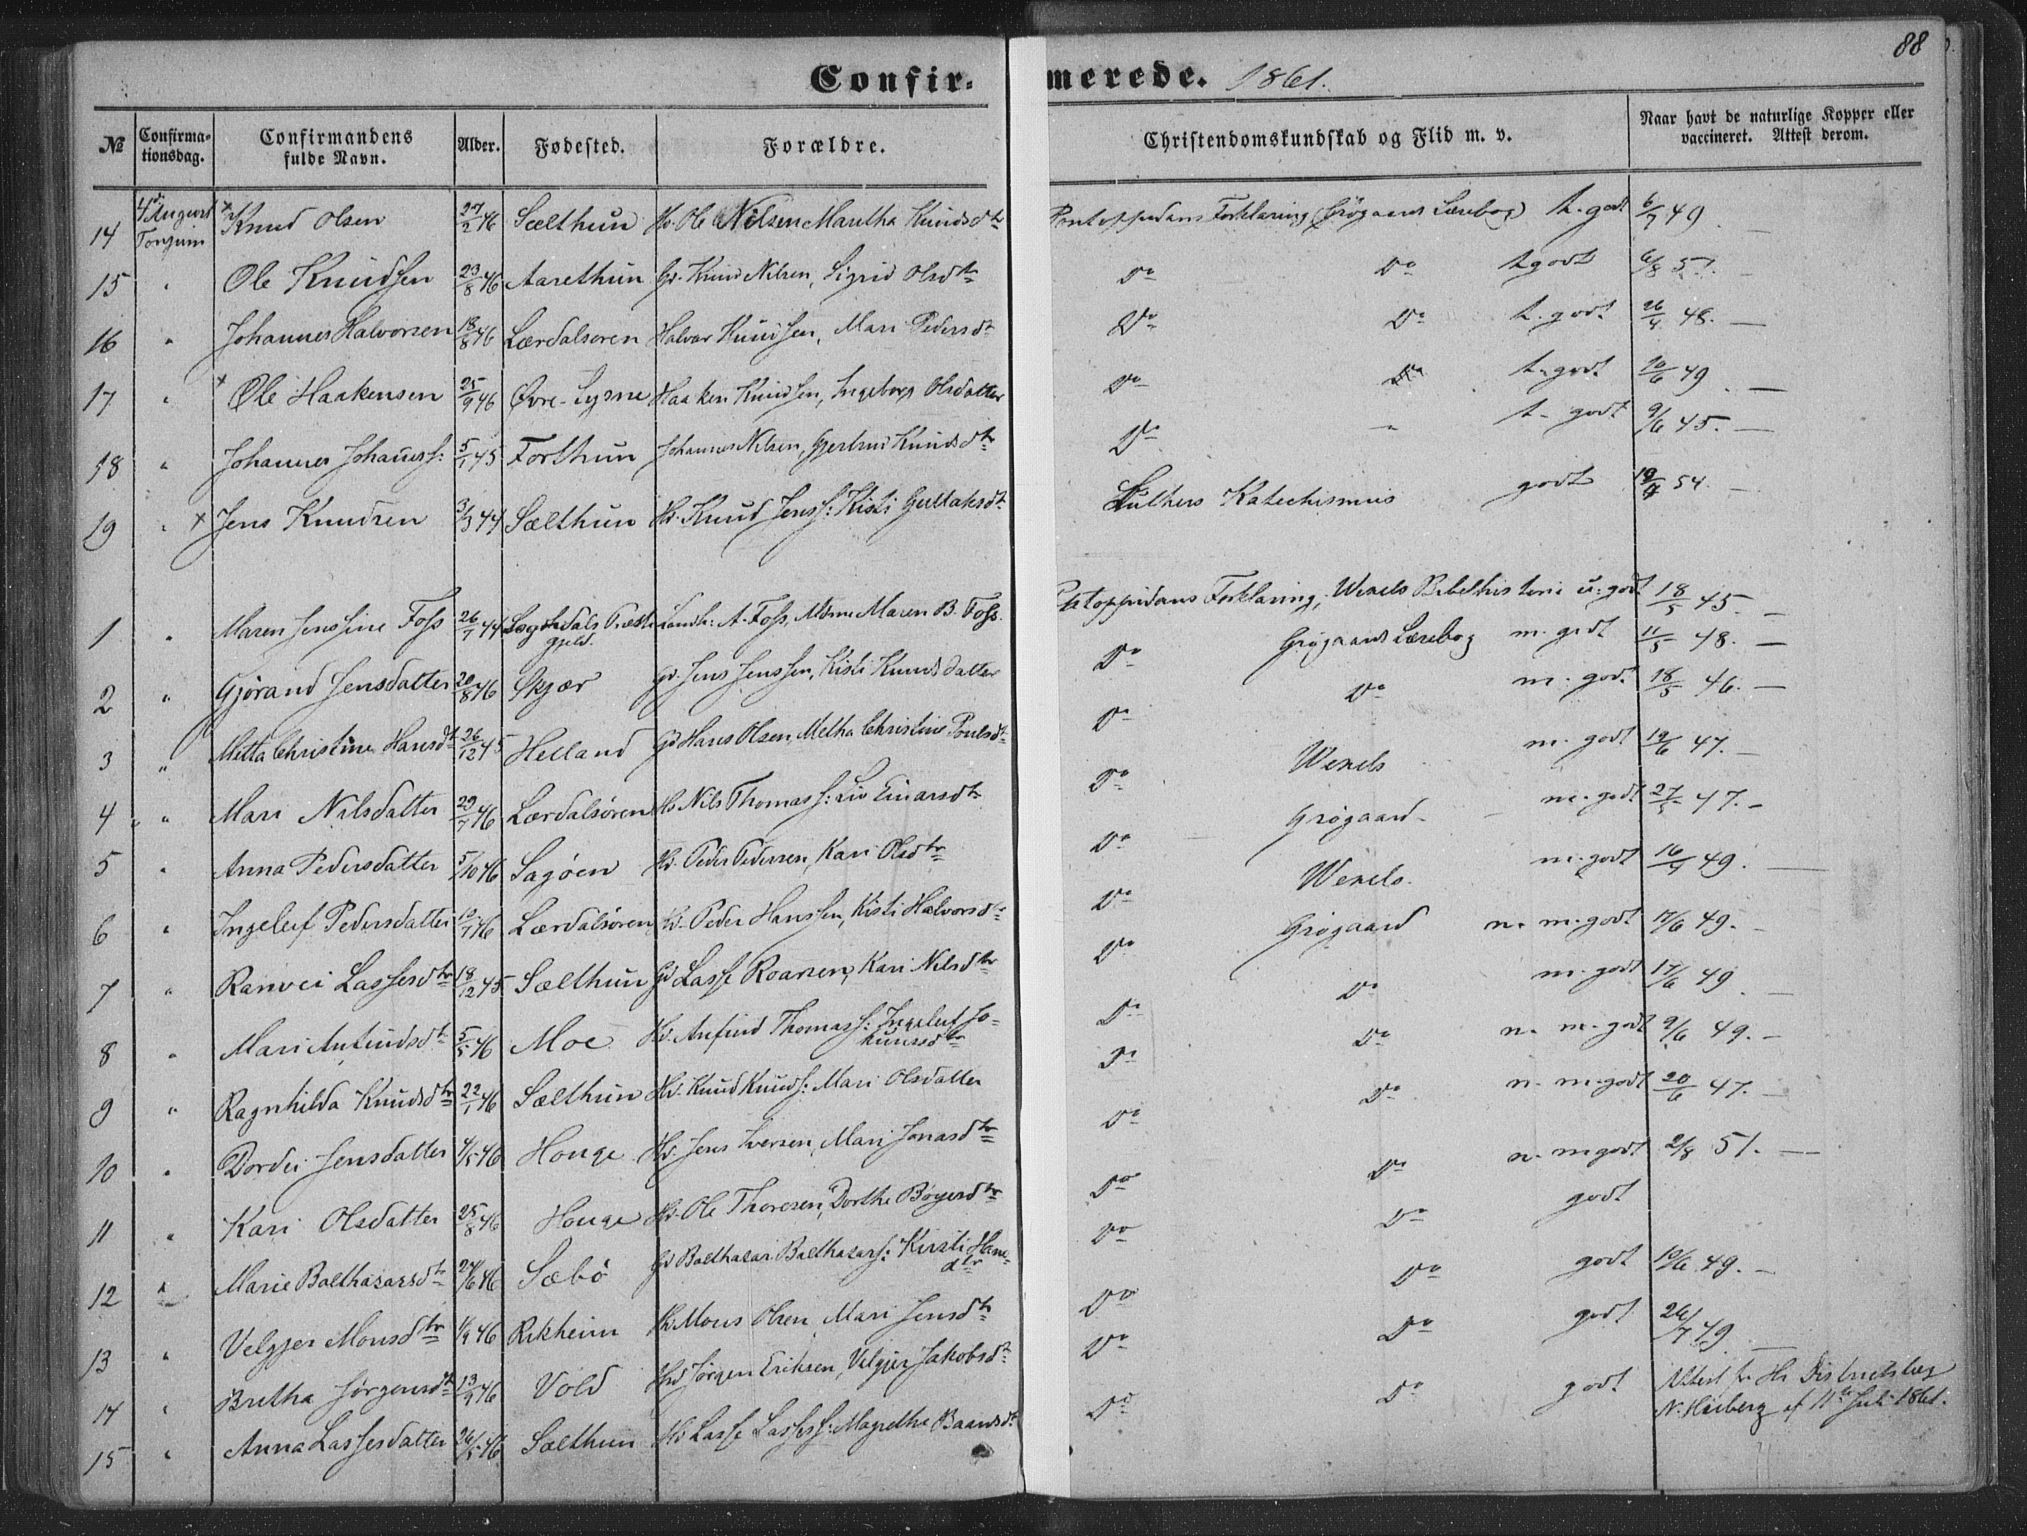 88
Confirmerede. 1861.
№ Confirmationsdag. Confirmandens fulde Navn. Alder. Fødested. Forældre. Christendomskundskab og Flid m. v. Naar havt de naturlige Kopper eller vaccineret. Attest derom.
14 4de August Tonjum × Knud Olsen 27/2 46 Sælthun Hd. Ole Nilsen Maretha Knudsdtr Pontoppidans Forklaring Grøgaards Læsebog t. godt 6/7 49. —
15 " Ole Knudsen 23/8 46 Aarethun Gd. Knud Nilsen, Sigrid Olsdtr Do Do t. godt 6/8 57. —
16 " Johannes Halvorsen 18/8 46 Lærdalsøren Halvor Knudsen, Mari Pedersdtr Do Do t. godt 26/4 48. —
17 " × Ole Haakensen 25/9 46 Øvre-Lysne Haaken Knudsen, Ingeborg Olsdatter Do Do t. godt 10/6 49. —
18 " Johannes Johanness: 5/1 45 Forthun Johannes Nilsen, Gjertrud Knudsdtr Do " t. godt 9/6 45. —
19 " × Jens Knudsen 3/3 44 Sælthun Hd. Knud Jenss: Kisti Gullaksdtr Luthers Katechismus godt 54. —
1 " Maren Jensine Foss 26/7 44 Præstegjeld. Landh: A. Foss, Mdme Maren B. Foss. Pontoppidans Forklaring, Wexels Bibelhistorie u: godt 18/5 45. —
2 " Gjørand Jensdatter 20/8 46 Skjær Gd. Jens Jenssen, Kisti Knudsdatter Do Grøgaards Læsebog m. godt 11/5 48. —
3 " Metta Christine Hansdtr 26/12 45 Helland Gd Hans Olsen, Metha Christine Poulsdtr Do Do m. godt 18/5 46. —
4 " Mari Nilsdatter 29/7 46 Lærdalsøren Hs Nils Thomass: Liv Einarsdtr Do Wexels m. godt 19/6 47. —
5 " Anna Pedersdatter 5/10 46 Sagøen Hd. Peder Pedersen, Kari Olsdtr Do Grøgaard m. godt 27/5 47. —
6 " Ingeleif Pedersdatter 46 Lærdalsøren Hd. Peder Hanssen, Kisti Halvorsdtr Do Wexels. m. godt 49. —
7 " Ranvei Lassesdtr 18/12 45 Sælthun Gd Lasse Roarsen, Kari Nilsdtr Do Grøgaard n. m. godt 17/6 49. —
8 " Mari Anfindsdtr 5/5 46 Moe Hd. Anfind Thomass: Ingeleif Johannesdtr Do Do m. godt 17/6 49. —
9 " Ragnhilda Knudsdtr 22/1 46 Sælthun Hd. Knud Knuds: Mari Olsdatter Do Do n. m. godt 9/6 49. —
10 " Dordei Jensdatter 4/5 46 Houge Hd. Jens Iversen, Mari Jonasdtr Do Do n. m. godt 20/6 47. —
11 " Kari Olsdatter 25/8 46 Houge Hd. Ole Thoresen, Dorthe Bøyesdtr Do Do n. m godt 2/8 51. —
12 " Marie Balthasarsdtr 24/6 46 Sæbø Gd Balthasar Balthasars: Kirsti Hansdtr Do Do godt
13 " Velgjer Monsdtr 46 Rikheim Mons Olsen, Mari Jensdtr Do Do godt 10/6 49. —
14 " Bretha Jørgensdtr 13/9 46 Vold Hd Jørgen Eriksen, Velgjer Jakobsdtr Do Do godt 26/7 49. —
15 " Anna Lassesdatter 46 Sælthun Hd Lasse Lasses: Magretha Baardsdtr Do Do godt Attest fr. Hr Districtslæg N. Heiberg af 11te Juli 1861.